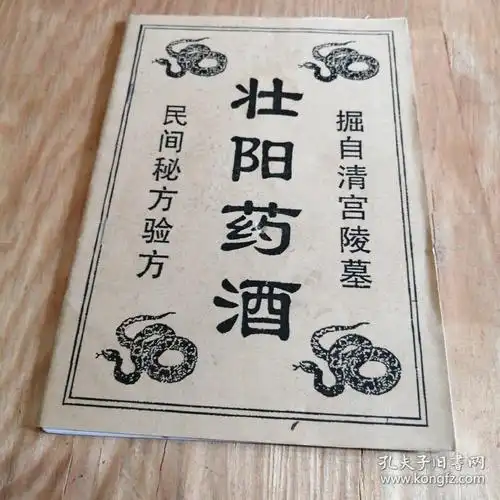 掘自清宫陵墓
壮阳药酒
民间秘方验方
孔夫子旧书网
www.kongfz.com